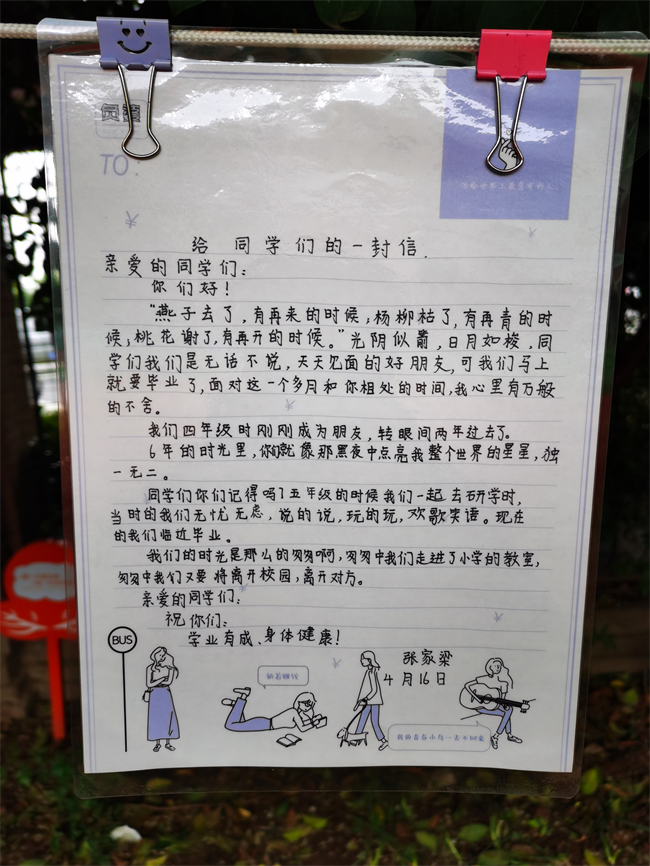 TO:
给 同学们的一封信.
亲爱的同学们:
你们好!
“燕子去了,有再来的时候;杨柳枯了,有再青的时
候;桃花谢了,有再开的时候。”光阴似箭,日月如梭,同
学们我们是无话不说,天天见面的好朋友,可我们马上
就要毕业了,面对这一个多月和你相处的时间,我心里有万般
的不舍。
我们四年级时刚刚成为朋友,转眼间两年过去了。
6年的时光里,你们就像那黑夜中点亮我整个世界的星星,独
一无二。
同学们你们记得吗?五年级的时候我们一起去研学时,
当时的我们无忧无虑,说的说,玩的玩,欢歌笑语。现在
的我们临近毕业。
我们的时光是那么的匆匆啊,匆匆中我们走进了小学的教室,
匆匆中我们又要将离开校园,离开对方。
亲爱的同学们:
祝你们:
学业有成、身体健康!
张家梁
4月16日
BUS
我的青春小鸟一去不回来